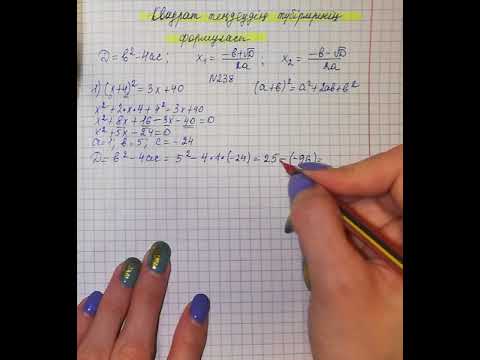 Квадрат теңдеудің түбірлерінің
формуласы
D = b² - 4ac; x₁ = (-b+√D)/2a; x₂ = (-b-√D)/2a
№238
1) (x+4)² = 3x+40 (a+b)² = a²+2ab+b²
x²+2•x•4+4² = 3x+40
x²+8x+16-3x-40=0
x²+5x-24=0
a=1, b=5, c=-24
D = b²-4ac = 5²-4•1•(-24) = 25-(-96)=